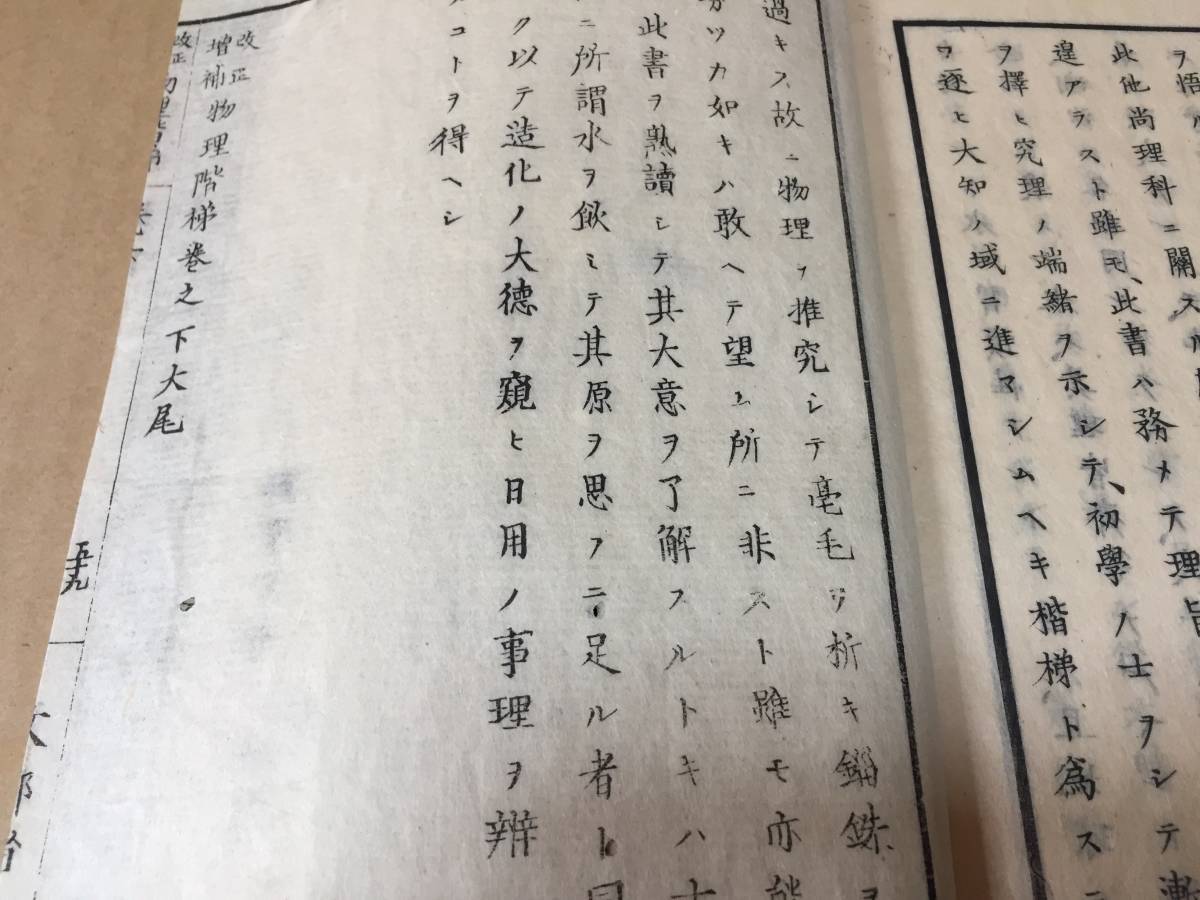 ヲ悟ル
此他尚理科ニ關スル
遑アラスト雖モ、此書ハ務メテ理旨
ヲ擇ヒ究理ノ端緒ヲ示シテ、初學ノ士ヲシテ漸
ヲ逐ヒ大知ノ域ニ進マシムヘキ楷梯ト爲スニ
過キス故ニ物理ヲ推究シテ毫毛ヲ析キ錙銖ヲ
分ツカ如キハ敢ヘテ望ム所ニ非スト雖モ亦能
此書ヲ熟讀シテ其大意ヲ了解スルトキハ士
ニ所謂水ヲ飲ミテ其原ヲ思フニ足ル者ト同
ク以テ造化ノ大德ヲ窺ヒ日用ノ事理ヲ辨
コトヲ得ヘシ
改正增補物理階梯卷之下大尾
五十九